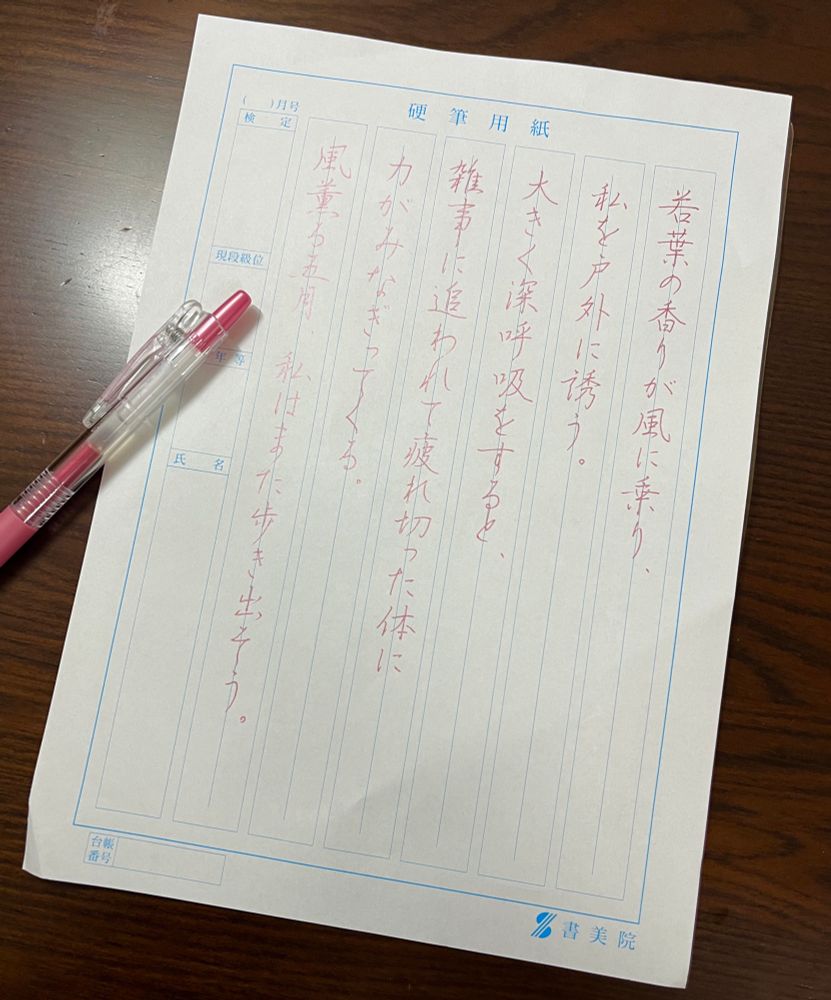 硬筆用紙
若葉の香りが風に乗り、
私を戸外に誘う。
大きく深呼吸をすると、
雑事に追われて疲れ切った体に
力がみなぎってくる。
風薫る五月 私はまた歩き出そう。
( )月号
検定
現段級位
年等
氏名
台帳
番号
書美院